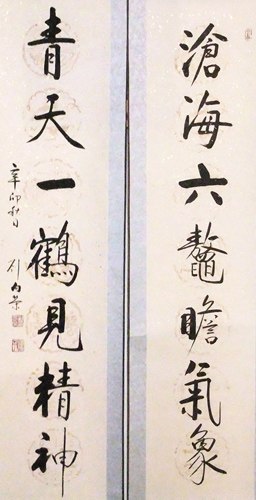 滄海六鼇瞻氣象
青天一鶴見精神
辛卯秋月